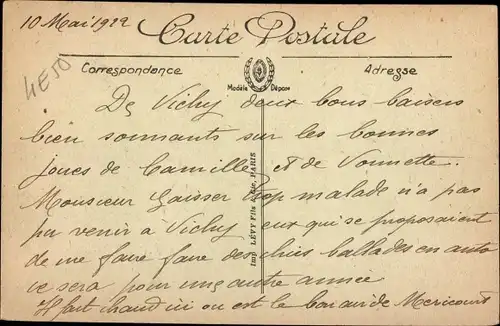 10 Mai 1922
Carte Postale
Correspondance
Adresse
Modèle Déposé
4E50
De Vichy deux bons baisers
bien sonnants sur les bonnes
joues de Camille et de Vonnette.
Monsieur Gaisser trop malade n'a pas
pu venir à Vichy eux qui se proposaient
de me faire faire des chics ballades en auto
ce sera pour une autre année
Il fait chaud ici ou est le bon air de Mericourt
Imp. LÉVY Fils & Cie, PARIS